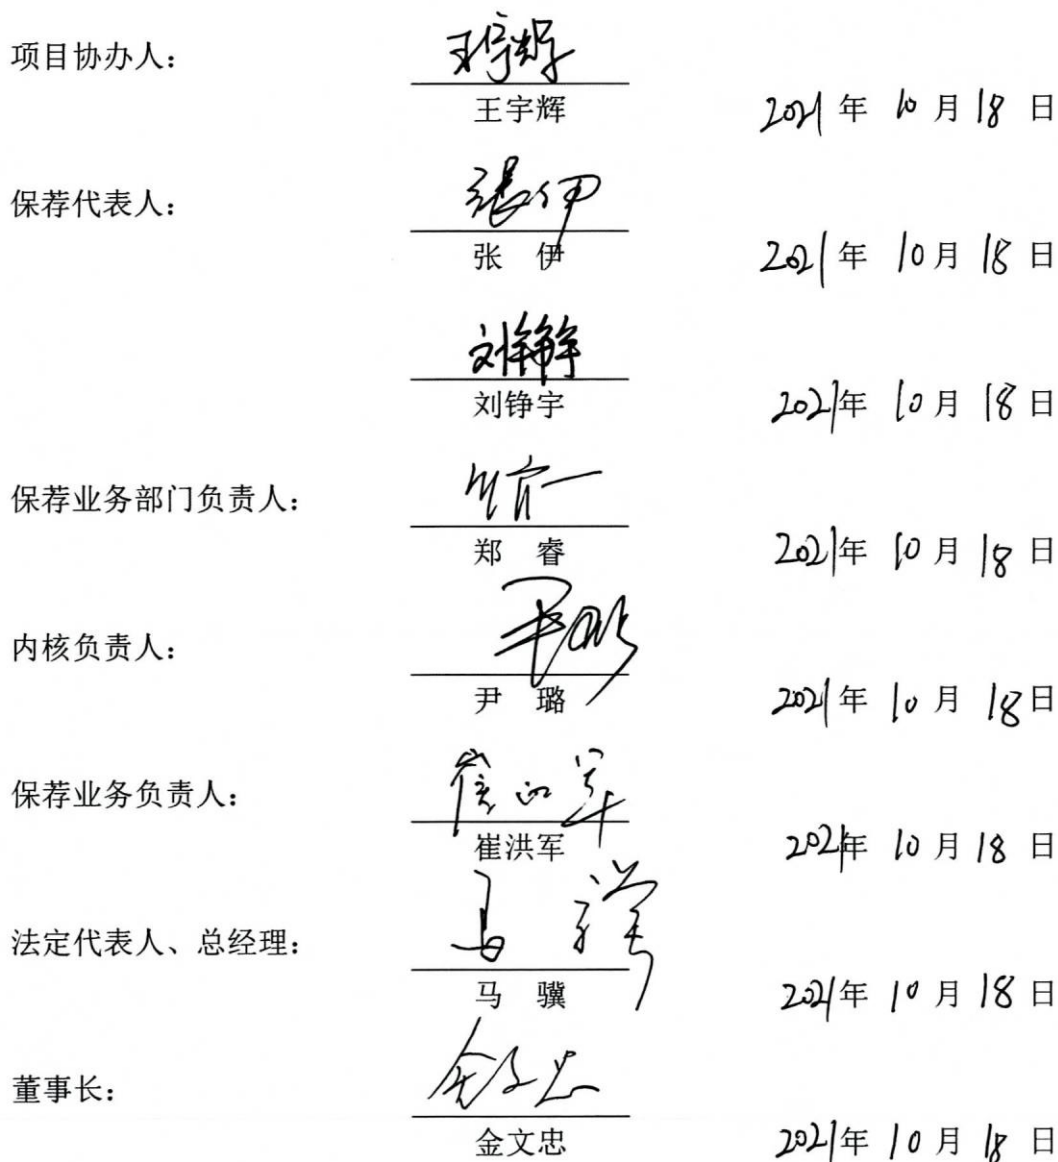 项目协办人：
王宇辉
王宇辉
2021年 10月18日
保荐代表人：
张伊
张 伊
2021年 10月18日
刘铮宇
刘铮宇
2021年 10月18日
保荐业务部门负责人：
郑 睿
2021年 10月18日
内核负责人：
尹璐
尹 璐
2021年 10月18日
保荐业务负责人：
崔洪军
崔洪军
2021年 10月18日
法定代表人、总经理：
马骥
马 骥
2021年 10月18日
董事长：
金文忠
金文忠
2021年 10月18日